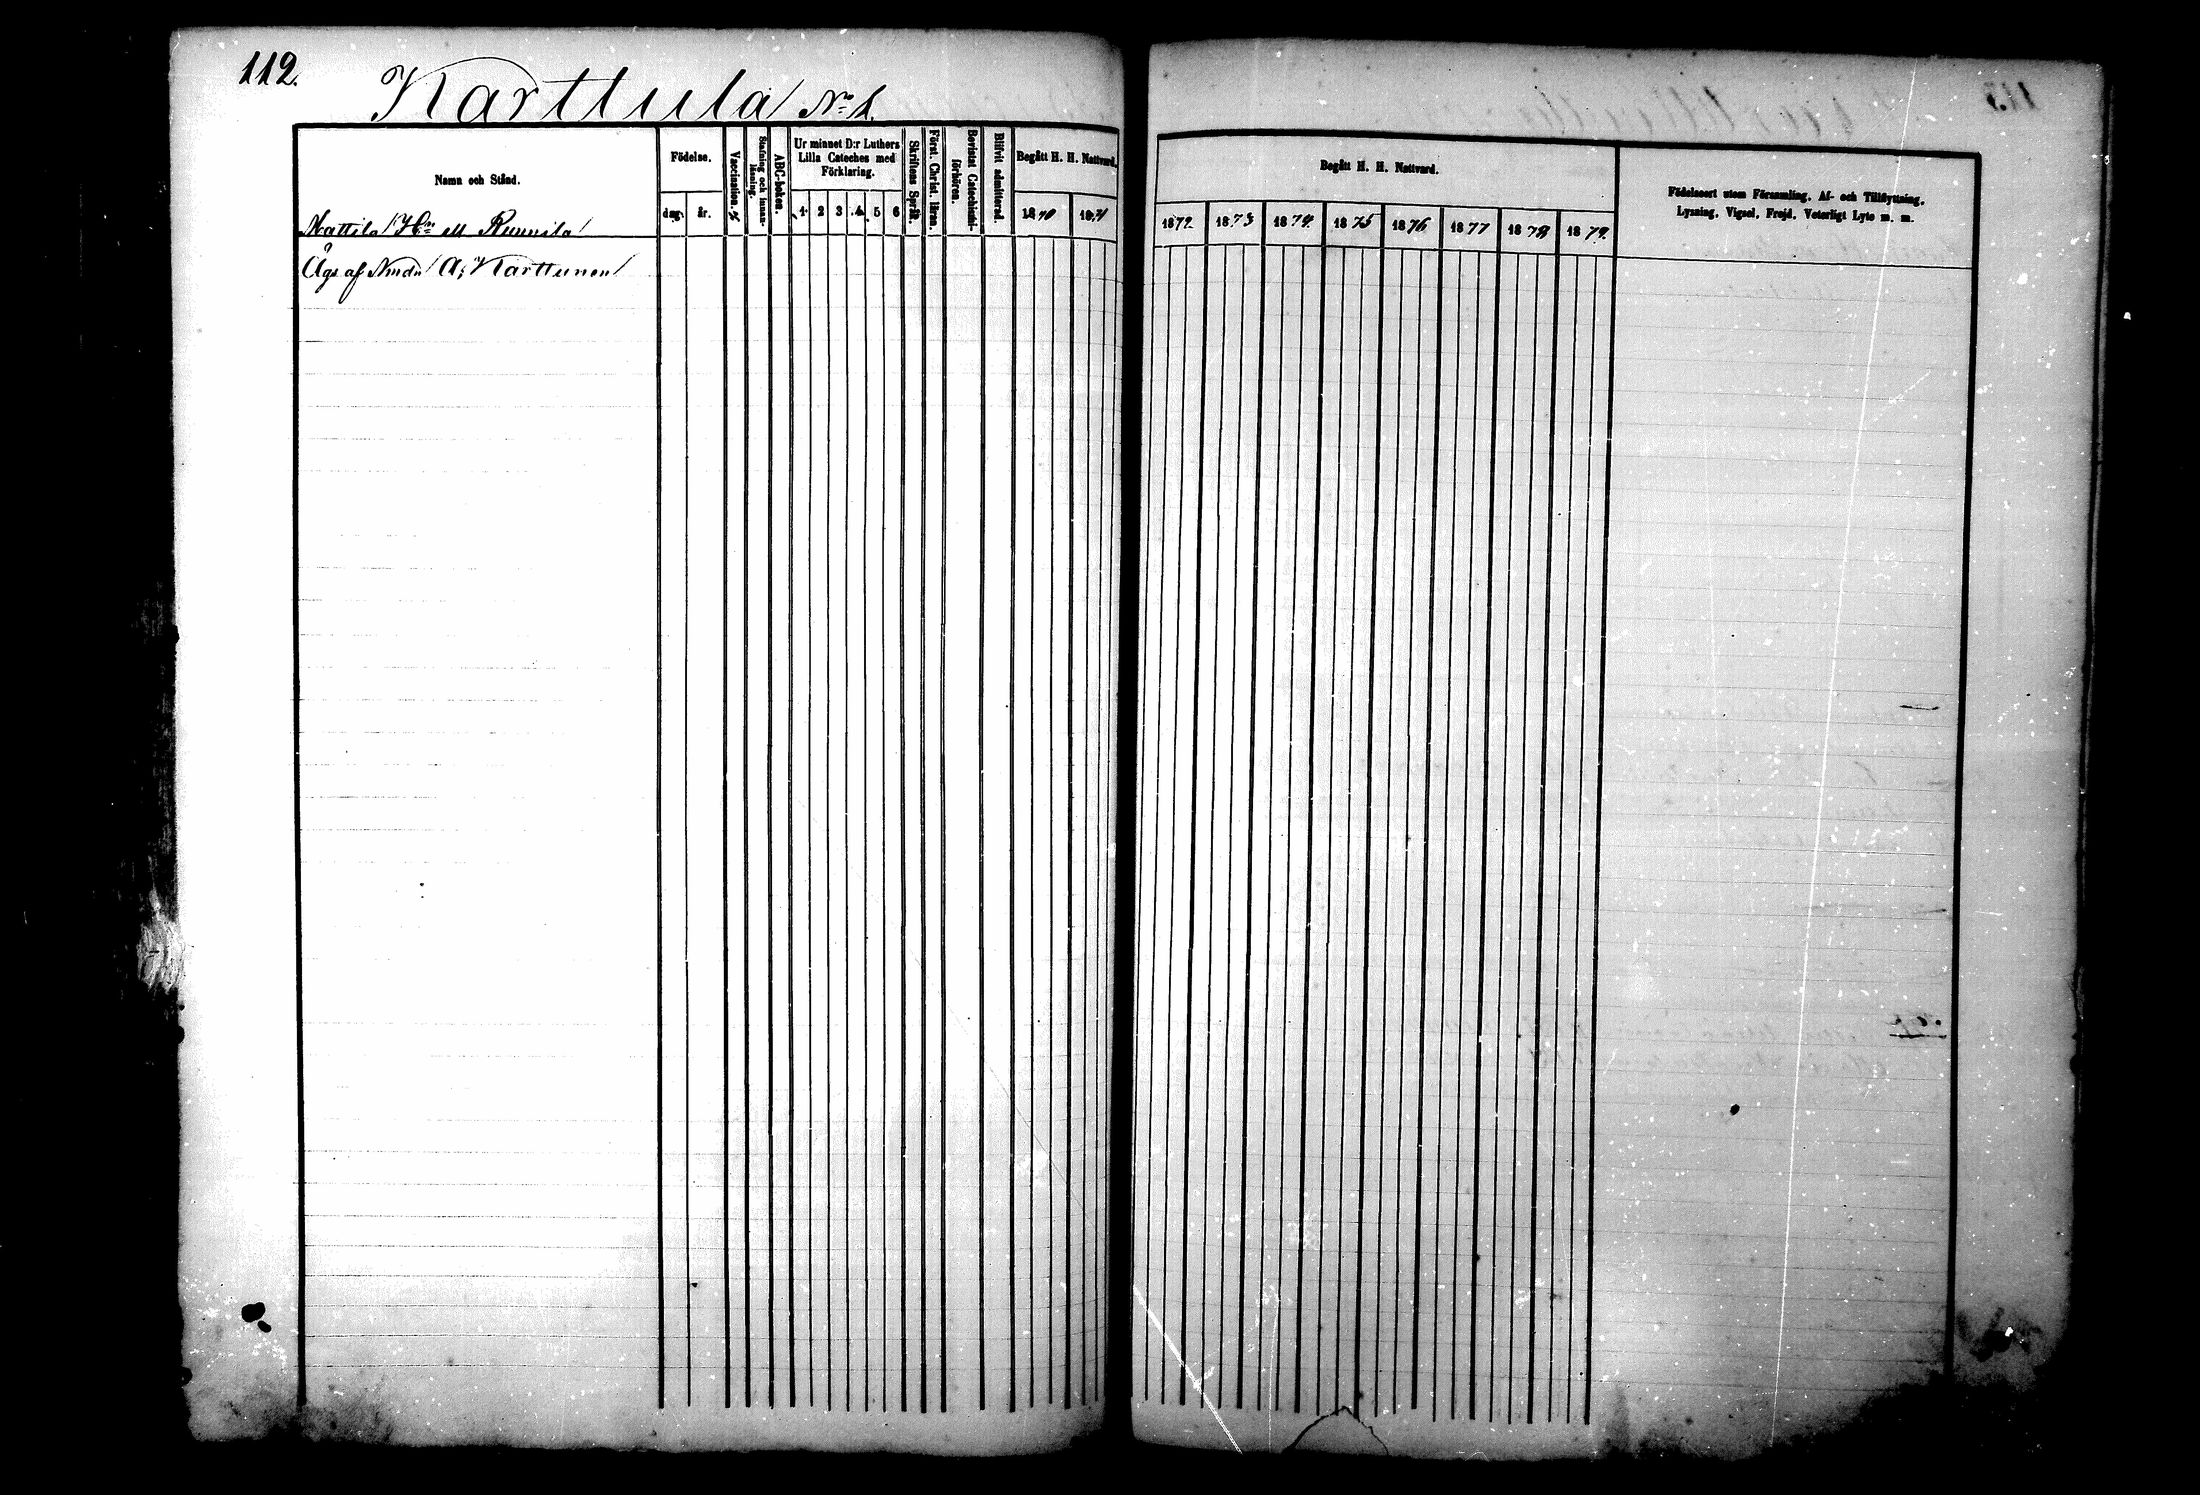 112.
Karttula No 1.
Namn och Stånd.
Födelse.
dag.
år.
Vaccination.
Stafning och innanläsning.
ABC-boken.
Ur minnet D:r Luthers
Lilla Cateches med
Förklaring.
1 2 3 4 5 6
Skriftens Språk.
Först. Christ. läran.
Bevistat Catechismiförhören.
Blifvit admitterad.
Begått H. H. Nattvard.
1870 1871
Begått H. H. Nattvard.
1872 1873 1874 1875 1876 1877 1878 1879
Födelseort utom Församling, Af- och Tillflyttning,
Lysning, Vigsel, Frejd, Veterligt Lyte m. m.
Mattila Hn ell Runnila
Äges af Nmdn A. Karttunen
113